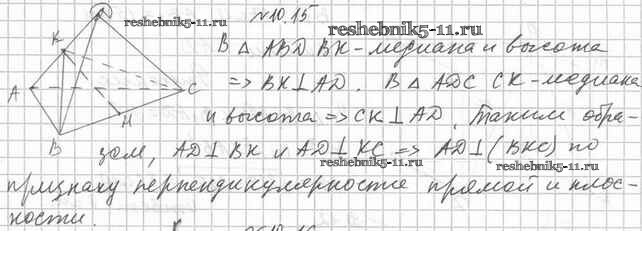 №10.15
reshebnik5-11.ru
reshebnik5-11.ru
В △ ABD BK - медиана и высота
=> BK⊥AD. В △ ADC CK - медиана
и высота => CK⊥AD. Таким обра-
зом, AD⊥BK и AD⊥KC => AD⊥(BKC) по
reshebnik5-11.ru
reshebnik5-11.ru
признаку перпендикулярности прямой и плос-
кости.
K
A
C
H
B